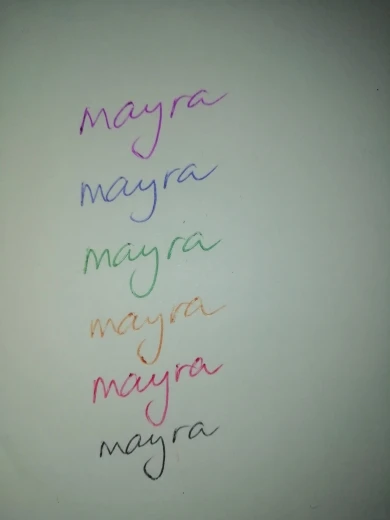 mayra
mayra
mayra
mayra
mayra
mayra